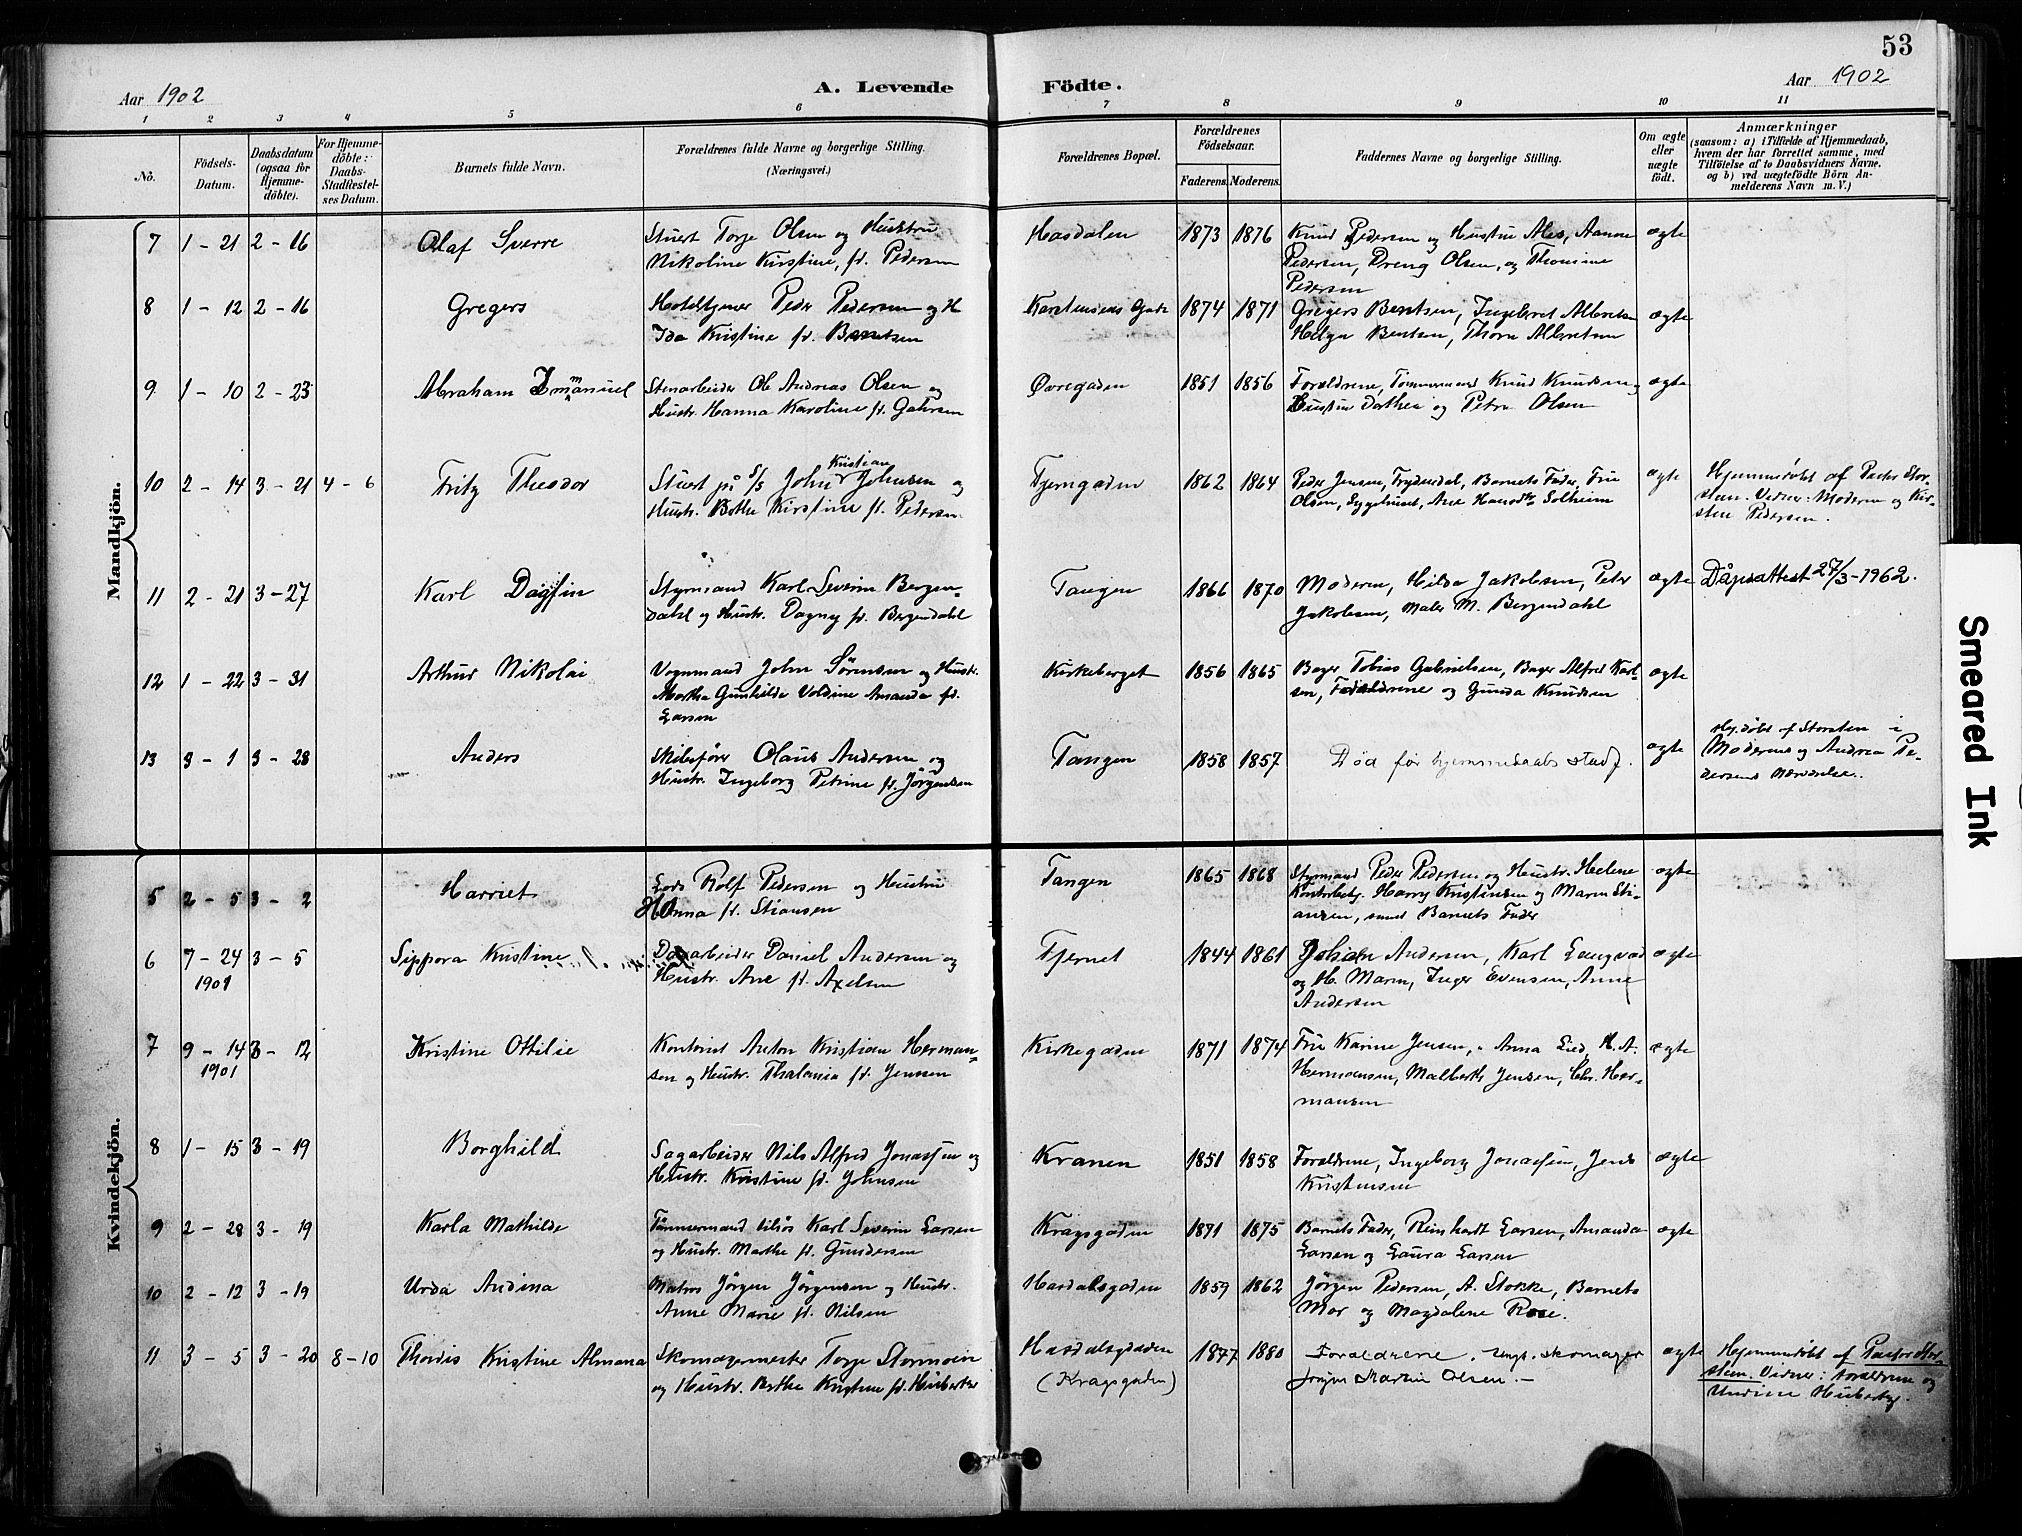 53
Aar 1902
A. Levende Födte.
Aar 1902
1 2 3 4 5 6 7 8 9 10 11
No.
Födsels-Datum.
Daabsdatum (ogsaa for Hjemmedöbte).
For Hjemmedöbte: Daabs-Stadfæstelses Datum.
Barnets fulde Navn.
Forældrenes fulde Navne og borgerlige Stilling. (Næringsvei.)
Forældrenes Bopæl.
Forældrenes Födselsaar.
Faderens. Moderens.
Faddernes Navne og borgerlige Stilling.
Om ægte eller uægte födt.
Anmærkninger
(saasom: a) i Tilfælde af Hjemmedaab, hvem der har forrettet samme, med Tilföielse af to Daabsvidners Navne. og b) ved uægtefödte Börn Anmelderens Navn m. V.)
Mandkjön.
7 1-21 2-16 Olaf Sverre
Stuert Torje Olsen og Hustru
Nikoline Kirstine, f. Pedersen
Hasdalen 1873 1876
Knud Pedersen og Hustru Ales, Aanne
Pedersen, Dreng Olsen, og Thomine
Pedersen
ægte
8 1-12 2-16 Gregers
Hoteltjener Peder Pedersen og H
Ida Kristine f. Bentsen
Karstensens Gade 1874 1871
Gregers Bentsen, Ingebret Albretsen
Helga Bentsen, Thora Albretsen
ægte
9 1-10 2-23 Abraham Immanuel
Stenarbeider Ole Andreas Olsen og
Hustr. Hanna Karoline f.
Øvregaden 1851 1856
Forældrene, Tömmermand Knud Knudsen og
Hustru Dorthea og Petra Olsen
ægte
10 2-14 3-21 4-6 Fritz Theodor
Stuert på S/S John Kristian Johnsen og
Hustr. Bothe Kirstine f. Pedersen
Tjerngaden 1862 1864
Peder Jensen, Frydendal, Barnets Fader, Fru
Olsen, Sygehuset, Ane Hansdtr Solheim
ægte
Hjemmedöbt af Pastor Stor-
sten. Vidner: Moderen og Kir-
stine Pedersen.
11 2-21 3-27 Karl Dagfin
Styrmand Karl Severin Bergen-
dahl og Hustr. Dagny f. Bergendahl
Tangen 1866 1870
Moderen, Hilda Jakobsen, Peter
Jakobsen, Maler M. Bergendahl
ægte
Dåpsattest 27/3-1962.
12 1-22 3-31 Arthur Nikolai
Vognmand John Sörensen og Hustr.
Martha Gunhilde Voldine Amanda fd.
Larsen
Kirkeberget 1856 1865
Bager Tobias Gabrielsen, Bager Alfred Karl-
sen, Forældrene og Gunda Knudsen
ægte
13 3-1 3-28 Anders
Skibsfører Olaus Andersen og
Hustr. Ingeborg Petrine f. Jörgensen
Tangen 1858 1857
Död før hjemmedaabs stadf.
ægte
Hj.döbt af Storsten i
Moderens og Andrea Pe-
dersens nærværelse.
Kvindekjön.
5 2-5 3-2 Harriet
Lods Rolf Pedersen og Hustru
Anna f. Stiansen
Tangen 1865 1868
Styrmand Peder Pedersen og Hustr. Helene
Harry Kristensen og Maren Sti-
ansen, samt Barnets Fader
ægte
6 7-24 1901 3-5 Sippora Kristine
Dagarbeider Daniel Andersen og
Hustr. Ane f. Axelsen
Tjernet 1844 1861
Johan Andersen, Karl Langvad
og H. Maren, Inger Evensen, Anne
Andersen
ægte
7 9-14 1901 3-12 Kristine Ottilie
Kontorist Anton Kristian Herman-
sen og Hustr. Thalania f. Jenssen
Kirkegaden 1871 1874
Fru Karine Jensen, Anna Lied, H. A.
Hermansen, Malberth Jensen, Chr. Her-
mansen
ægte
8 1-15 3-19 Borghild
Sagarbeider Nils Alfred Jonassen og
Hustr. Kristine f. Johnsen
Kranen 1851 1858
Forældrene, Ingeborg Jonassen, Jens
Kristensen
ægte
9 2-28 3-19 Karla Mathilde
Tömmermand tilsjös Karl Severin Larsen
og Hustr. Marthe f. Gundersen
Kragsgaden 1871 1875
Barnets Fader, Reinhardt Larsen, Amanda
Larsen og Laura Larsen
ægte
10 2-12 3-19 Urda Andina
Matros Jörgen Jörgensen og Hustr.
Anne Marie f. Nilsen
Hasdalsgaden 1859 1862
Jörgen Pedersen, A. Stokke, Barnets
Mor og Magdalene Rose.
ægte
11 3-5 3-20 8-10 Thordis Kristine Almana
Skomagermester Torje Stormoen
og Hustr. Berthe Kristine f.
Hasdalsgaden
(Kragsgaden)
1877 1880
Forældrene. Ungk. skomager
Jörgen Martin Olsen.-
ægte
Hjemmedöbt af Pastor Stor-
sten. Vidner: Forældrene og
Undine
Smeared Ink